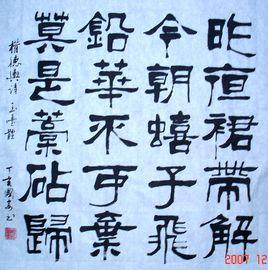 昨宵裙帶解
今朝蟢子飛
鉛華不可棄
莫是藁砧歸
權德輿詩 玉臺體
丁亥
2007 12